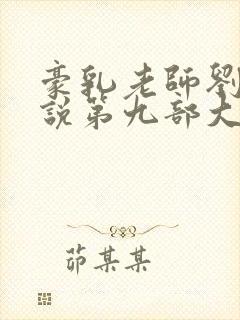 豪乳老師劉
說第九部大
茆某某